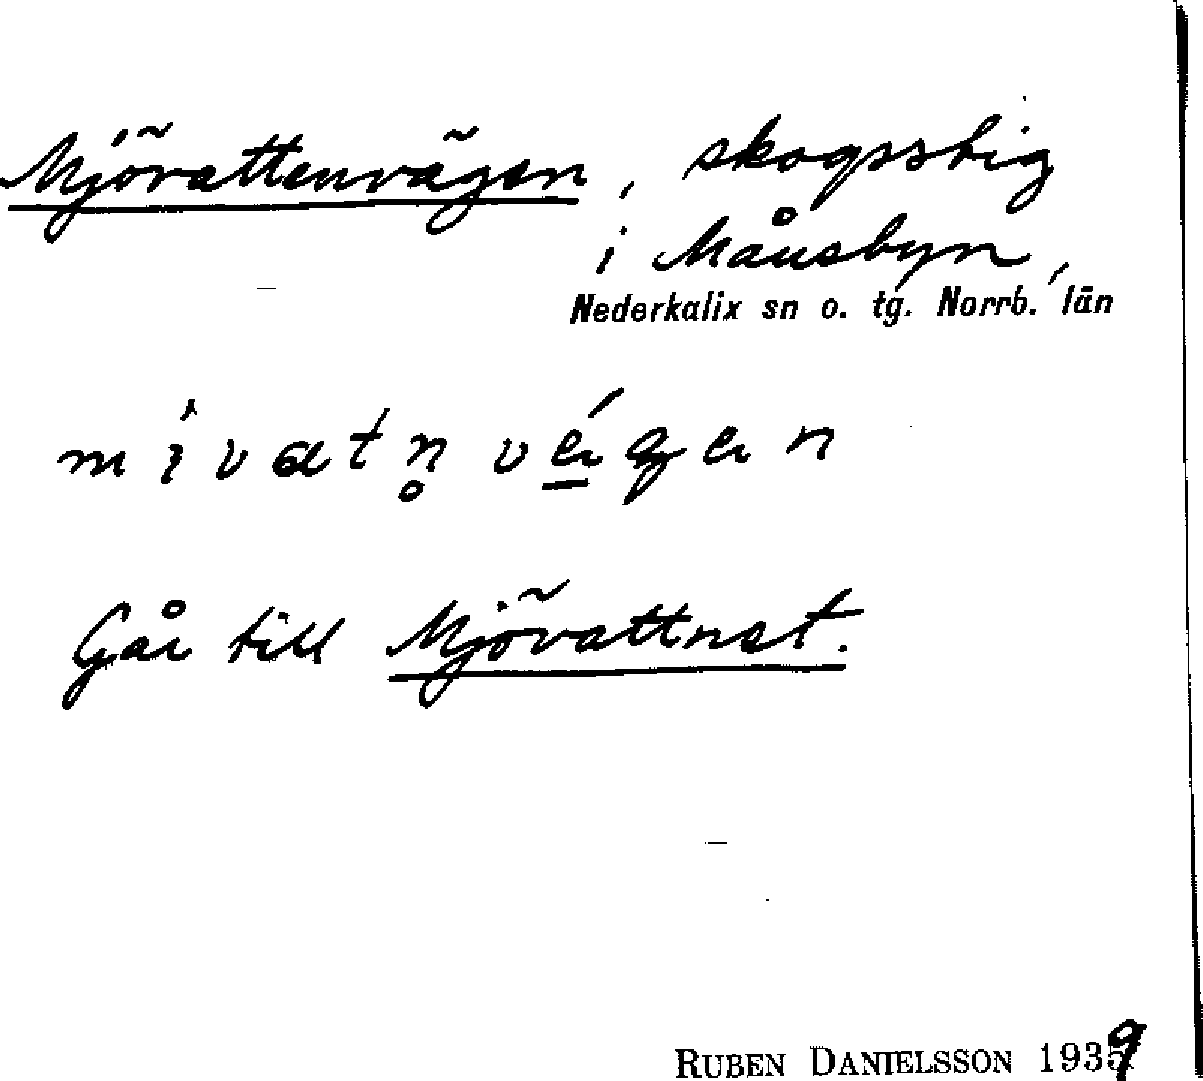 Mjövattenvägen, skogsstig
i Månsbyn,
Nederkalix sn o. tg. Norrb. län
Går till Mjövattnet.
RUBEN DANIELSSON 1939